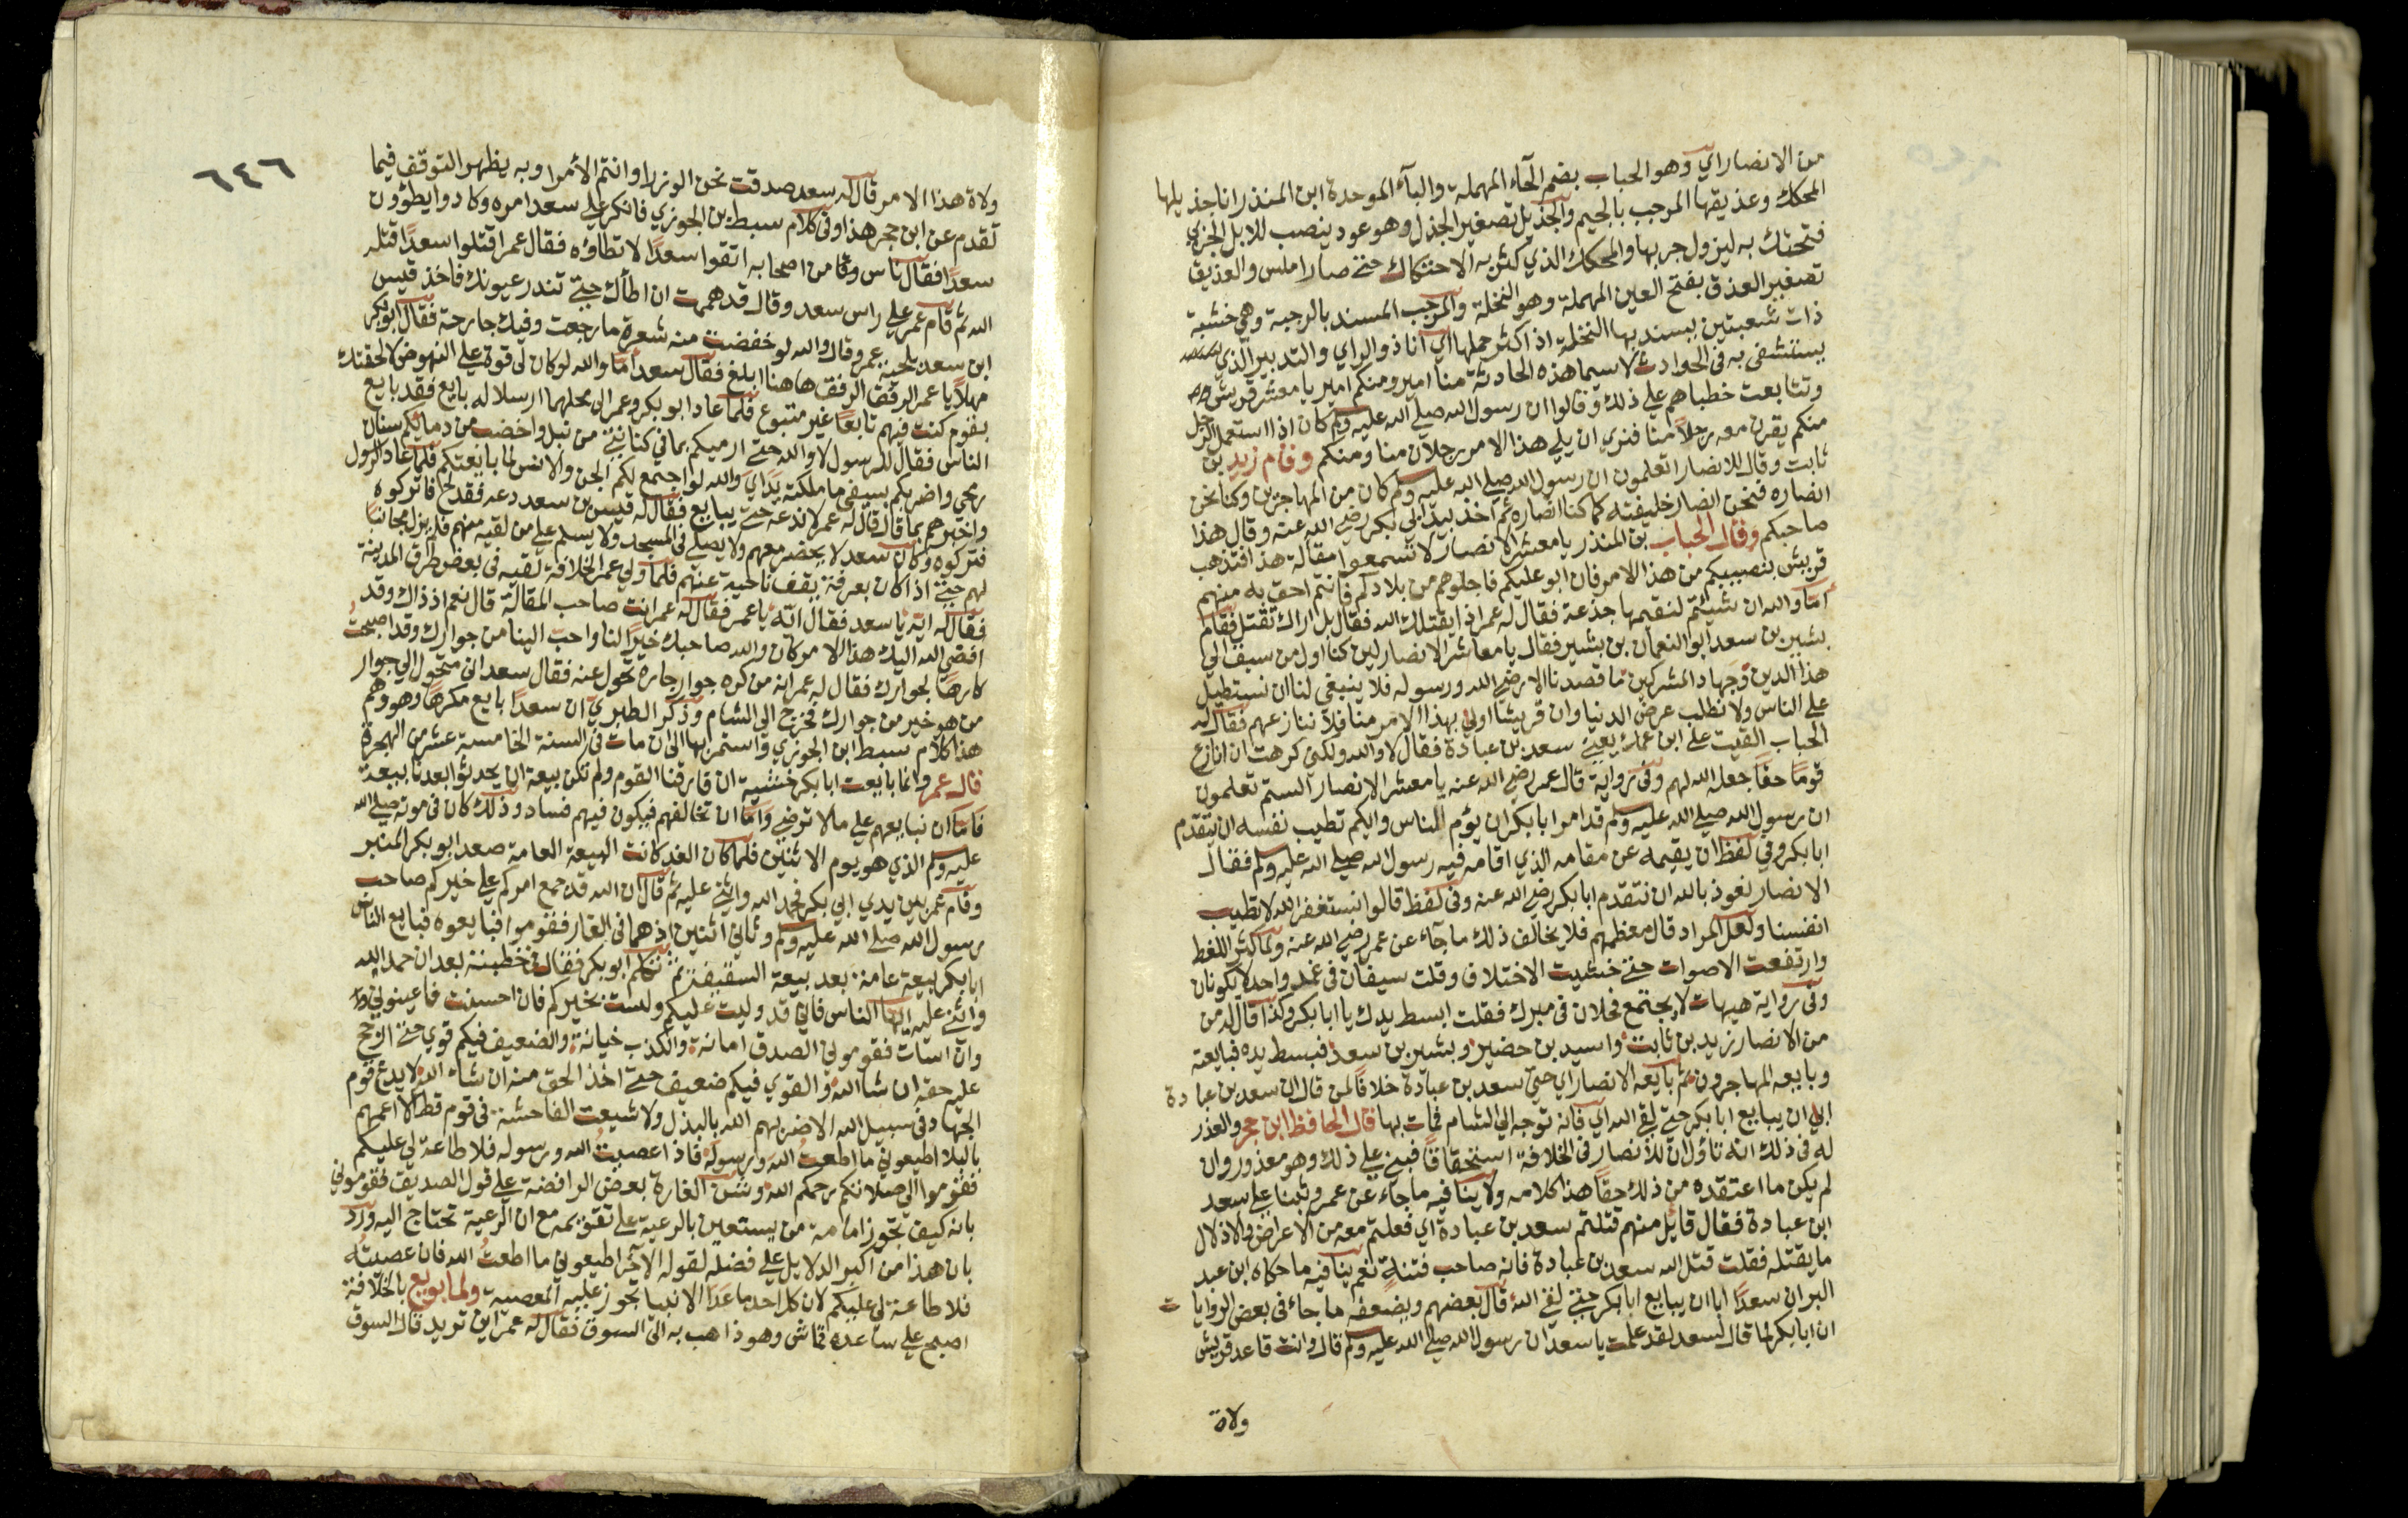 من الانصار اي وهو الحباب بضم الحآء المهملة والبآء الموحدة ابن المنذر انا جذيلها
المحكك وعذيقها المرجب بالجيم والجذيل تصغير الجذل وهو عود ينصب للابل الجربي
فتحتك به ليزول جربها والمحكك الذي كثر به الاحتكاك حتى صار املس والعذيق
تصغير العذق بفتح العين المهملة وهو النخلة والمرجب المسند بالرجبة وهي خشبة
ذات شعبتين يسند بها النخلة اذ اكثر حملها اي انا ذو الراي والتدبير الذي
يستشفى به في الحوادث لاسيما هذه الحادثة منا امير ومنكم امير يا معشر قريش
وتتابعت خطباهم على ذلك وقالوا ان رسول الله صلى الله عليه وسلم كان اذا استعمل الرجل
منكم يقرن معه رجلا منا فنري ان يلي هذا الامر رجلان منا ومنكم وقام زيد بن
ثابت وقال للانصار اتعلمون ان رسول الله صلى الله عليه وسلم كان من المهاجرين وكنا نحن
انصاره فنحن انصار خليفته كما كنا انصاره ثم اخذ بيد ابي بكر رضي الله عنه وقال هذا
صاحبكم وقال الحباب بن المنذر يا معشر الانصار لا تسمعوا مقالة هذا فتذهب
قريش بنصيبكم من هذا الامر فان ابو عليكم فاجلوهم من بلادكم فانتم احق به منهم
اما والله ان شيئتم لنقيمها جذعة فقال له عمر اذا يقتلك الله فقال بل اراك تقتل فقام
بشير بن سعد ابو النعمان بن بشير فقال يا معاشر الانصار لين كنا اول من سبق الي
هذا الدين وجهاد المشركين ما قصدنا الا رضي الله ورسوله فلا ينبغي لنا ان نستطيل
على الناس ولا نطلب عرض الدنيا وان قريشا اولى بهذا الامر منا فلا ننازعهم فقال له
الحباب القيت على ابن عمك يعني سعد بن عبادة فقال لا والله ولكني كرهت ان انازع
قوما حقا جعل الله لهم وفي رواية قال عمر رضي الله عنه يا معشر الانصار الستم تعلمون
ان رسول الله صلى الله عليه وسلم قد امر ابا بكر ان يؤم الناس وايكم تطيب نفسه ان يتقدم
ابا بكر وفي لفظ ان يقيمه عن مقامه الذي اقامه فيه رسول الله صلى الله عليه وسلم فقال
الانصار نعوذ بالله ان نتقدم ابا بكر رضي الله عنه وفي لفظ قالوا نستغفر الله لا تطيب
انفسنا ولعل المراد قال معظمهم فلا يخالف ذلك ما جآء عن عمر رضي الله عنه ولما كثر اللغط
وارتفعت الاصوات حتى خشيت الاختلاف وقلت سيفان في غمد واحد لا يكونان
وفي رواية هيهات لا يجتمع فحلان في مبرك فقلت ابسط يدك يا ابا بكر وكذا قال له من
من الانصار زيد بن ثابت واسيد بن حضير وبشير بن سعد فبسط يده فبايعته
وبايعه المهاجرون ثم بايعه الانصار اي حتى سعد بن عبادة خلافا لمن قال ان سعد بن عبادة
ابي ان يبايع ابا بكر حتى لقي الله اي فانه توجه الي الشام فمات بها قال الحافظ ابن حجر والعذر
له في ذلك انه تاؤل ان للانصار في الخلافة استحقاقا فبني على ذلك وهو معذور وان
لم يكن ما اعتقده من ذلك حقا هذا كلامه ولا ينافيه ما جاء عن عمر وثبنا على سعد
ابن عبادة فقال قايل منهم قتلتم سعد بن عبادة اي فعلتم معه من الاعراض والاذلال
ما يقتله فقلت قتل الله سعد بن عبادة فانه صاحب فتنة نعم ينافيه ما حكاه ابن عبد
البر ان سعدا ابا ان يبايع ابا بكر حتى لقي الله قال بعضهم ويضعفه ما جاء في بعض الروايات
ان ابا بكر لما قال لسعد لقد علمت يا سعد ان رسول الله صلى الله عليه وسلم قال وانت قاعد قريش
ولاة
٦٤٦
ولاة هذا الامر قال له سعد صدقت نحن الوزرا وانتم الأمرا وبه يظهر التوقف فيما
تقدم عن ابن حجر هذا وفي كلام سبط بن الجوزي فانكر على سعد امره وكادوا يطؤون
سعدا فقال ناس من اصحابه اتقوا سعدا لا تطاؤه فقال عمر اقتلوا سعدا قتله
الله ثم قام عمر على راس سعد وقال قد هممت ان اطأك حتى تندر عيونك فاخذ قيس
ابن سعد بلحية عمر وقال والله لو خفضت منه شعرة ما رجعت وفيك جارحة فقال ابو بكر
مهلا يا عمر الرفق الرفق هاهنا ابلغ فقال سعد اما والله لو كان لي قوة على النهوض لالحقتك
بقوم كنت فيهم تابعا غير متبوع فلما عاد ابو بكر وعمر الى محلهما ارسلا له بايع فقد بايع
الناس فقال للرسول لا والله حتى ارميكم بما في كنانتي من نبل واخضب من دمائكم سنان
رمحي واضربكم بسيفي ما ملكته يداي والله لو اجتمع لكم الجن والانس لما بايعتكم فلما عاد الرسول
واخبرهم بما قال قال له عمر لا ندعه حتى يبايع فقال له قيس بن سعد دعه فقد لج فاتركوه
فتركوه وكان سعد لا يحضر معهم ولا يصلي في المسجد ولا يسلم على من لقيه منهم فلم يزل مجانبا
لهم حتى اذا كان بعرفة يقف ناحية عنهم فلما ولي عمر الخلافة لقيه في بعض طرق المدينة
فقال له ايه يا سعد فقال ايه يا عمر فقال له عمر انت صاحب المقالة قال نعم اذ ذاك وقد
افضي الله اليك هذا الامر كان والله صاحبك خيرا لنا واحب الينا من جوارك وقد اصبحت
كارها لجوارك فقال له عمر انه من كره جوار جاره تحول عنه فقال سعد اني متحول الي جوار
من هو خير من جوارك فخرج الى الشام وذكر الطبري ان سعدا بايع مكرها وهو وهم
هذا كلام سبط ابن الجوزي واستمر بها الى ان مات في السنة الخامسة عشر من الهجرة
قال عمر وانما بايعت ابا بكر خشية ان فارقنا القوم ولم تكن بيعة ان يحدثوا بعدنا بيعة
فاما ان نبايعهم على ما لا نرضي واما ان نخالفهم فيكون فيهم فساد وذلك كان في موته صلى الله
عليه وسلم الذي هو يوم الاثنين فلما كان الغد كانت البيعة العامة صعد ابو بكر المنبر
وقام عمر بين يدي ابي بكر فحمد الله واثنى عليه ثم قال ان الله قد جمع امركم على خيركم صاحب
رسول الله صلى الله عليه وسلم وثاني اثنين اذ هما في الغار فقوموا فبايعوه فبايع الناس
ابا بكر بيعة عامة بعد بيعة السقيفة ثم تكلم ابو بكر فقال في خطبته بعد ان حمد الله
واثنى عليه ايها الناس فاني قد وليت عليكم ولست بخيركم فان احسنت فاعينوني
وان اسات فقوموني الصدق امانة والكذب خيانة والضعيف فيكم قوي حتى ازيح
عليه حقه ان شا الله والقوي فيكم ضعيف حتى اخذ الحق منه ان شاء الله لا يدع قوم
الجهاد في سبيل الله الا ضربهم الله بالبذل ولا شيعت الفاحشة في قوم قط الا اعمهم
بالبلا اطيعوني ما اطعت الله ورسوله فاذا عصيت الله ورسوله فلا طاعة لي عليكم
فقوموا الى صلاتكم رحمكم الله وشن الغارة بعض الرافضة على قول الصديق فقوموني
بانه كيف تجوز امامة من يستعين بالرعية على تقويمه مع ان الرعية تحتاج اليه ورد
بان هذا من اكبر الدلايل على فضله لقوله الآخر اطيعوني ما اطعت الله فان عصيته
فلا طاعة لي عليكم لان كل احد ما عدا الانبيا يجوز عليه المعصية ولما بويع بالخلافة
اصبح على ساعده قماش وهو ذاهب به الى السوق فقال له عمر اين تريد قال السوق